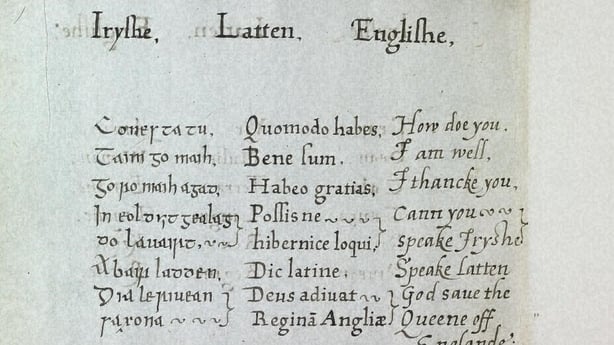 Iryshe, Latten, Englishe,
Cones ta tu, Quomodo habes, How doe you.
Taim go maih, Bene sum. I am well,
Go ro maih agad, Habeo gratias, I thancke you,
In eolgis gealag Possisne Cann you
do lauairt, hibernice loqui, speake Iryshe
Abair laden, Dic latine, Speake Latten
Dia le riuean Deus adiuat God save the
saxona Reginā Angliæ Queene off
Englande